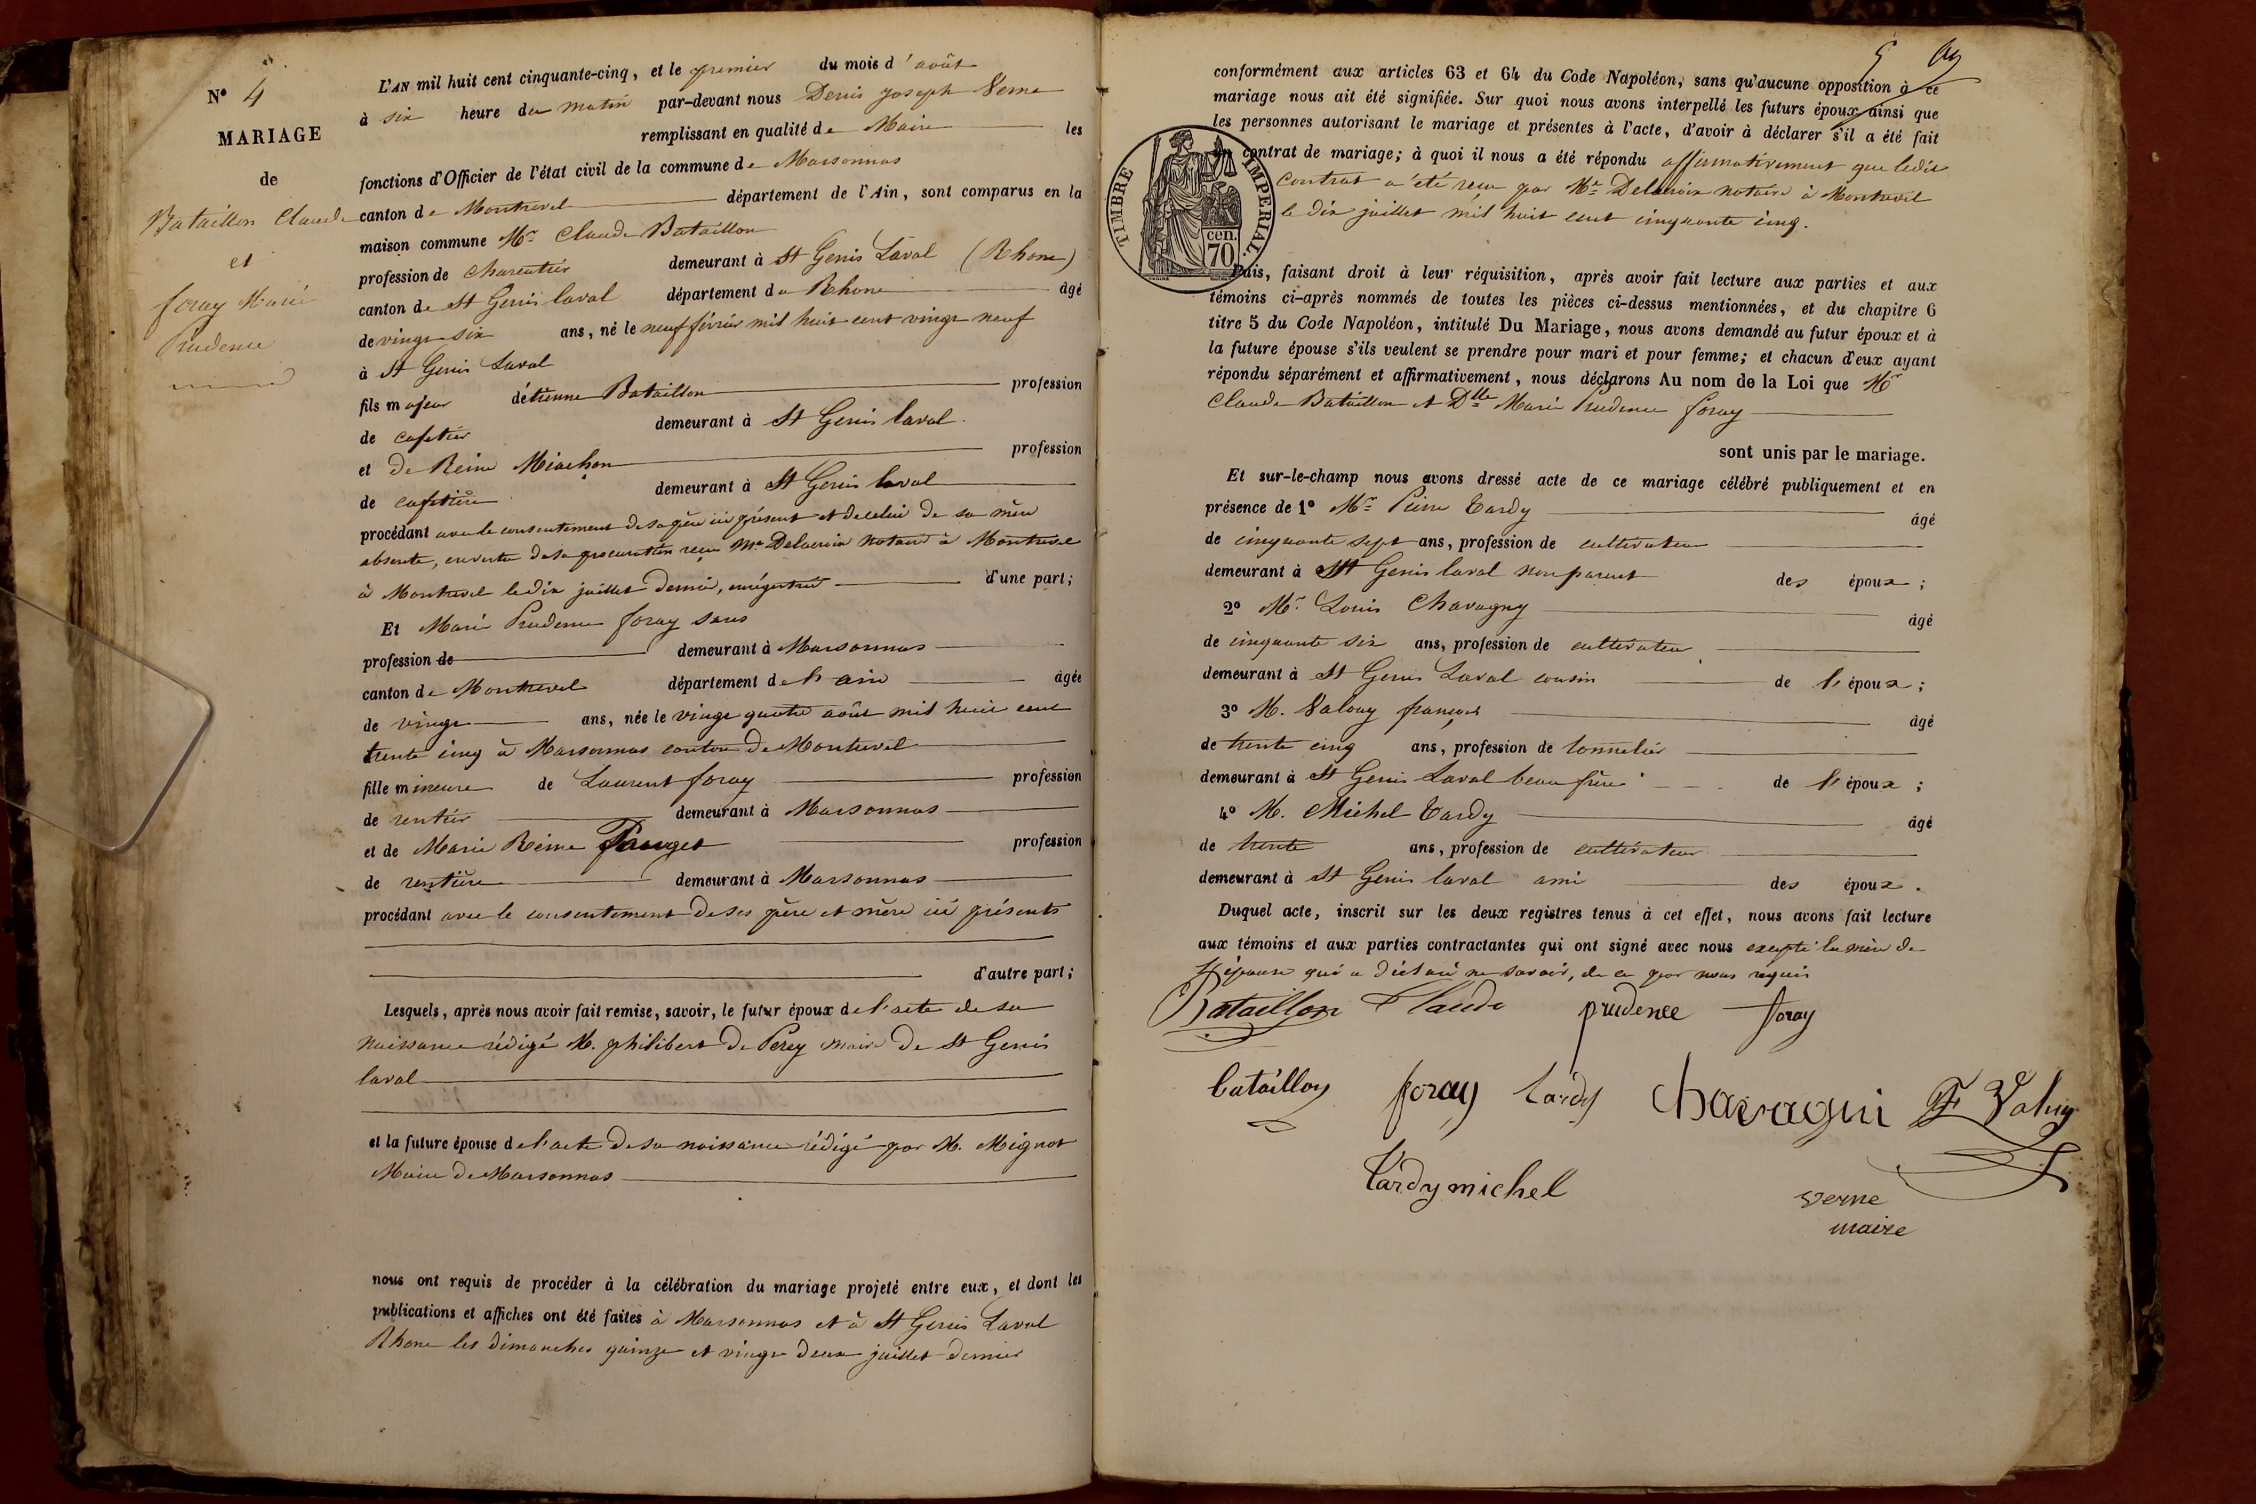 N° 4
MARIAGE
de
Bataillon Claude
et
foray Marie
Prudence
L'AN mil huit cent cinquante-cinq, et le premier du mois d'août
à six heure du matin par-devant nous Denis Joseph Verne
remplissant en qualité de Maire les
fonctions d'Officier de l'état civil de la commune de Marsonnas
canton de Montrevel département de l'Ain, sont comparus en la
maison commune Mr Claude Bataillon
profession de charcutier demeurant à St Genis Laval (Rhone)
canton de St Genis laval département du Rhone âgé
de vingt six ans, né le neuf février mil huit cent vingt neuf
à St Genis Laval
fils majeur d'étienne Bataillon profession
de cafetier demeurant à St Genis laval
et de Reine Miachon profession
de cafetière demeurant à St Genis laval
procédant avec le consentement de son père ici présent et de celui de sa mère
absente, en vertu de sa procuration reçue Me Delacroix Notaire à Montrevel
à Montrevel le dix juillet dernier, enregistrée d'une part;
Et Marie Prudence foray sans
profession de demeurant à Marsonnas
canton de Montrevel département de l'ain âgée
de vingt ans, née le vingt quatre août mil huit cent
trente cinq à Marsonnas canton de Montrevel
fille mineure de Laurent foray profession
de rentier demeurant à Marsonnas
et de Marie Reine Pauget profession
de rentière demeurant à Marsonnas
procédant avec le consentement de ses père et mère ici présents
d'autre part;
Lesquels, après nous avoir fait remise, savoir, le futur époux de l'acte de sa
naissance rédigé M. philibert De Perey maire De St Genis
laval
et la future épouse de l'acte de sa naissance rédigé par M. Mignot
Maire de Marsonnas
nous ont requis de procéder à la célébration du mariage projeté entre eux, et dont les
publications et affiches ont été faites à Marsonnas et à St Genis Laval
Rhone les dimanches quinze et vingt deux juillet dernier
5
conformément aux articles 63 et 64 du Code Napoléon, sans qu'aucune opposition à ce
mariage nous ait été signifiée. Sur quoi nous avons interpellé les futurs époux ainsi que
les personnes autorisant le mariage et présentes à l'acte, d'avoir à déclarer s'il a été fait
un contrat de mariage; à quoi il nous a été répondu affirmativement que ledit
contrat a été reçu par Me Delacroix notaire à Montrevel
le dix juillet mil huit cent cinquante cinq.
TIMBRE IMPERIAL.
70 cen.
Puis, faisant droit à leur réquisition, après avoir fait lecture aux parties et aux
témoins ci-après nommés de toutes les pièces ci-dessus mentionnées, et du chapitre 6
titre 5 du Code Napoléon, intitulé Du Mariage, nous avons demandé au futur époux et à
la future épouse s'ils veulent se prendre pour mari et pour femme; et chacun d'eux ayant
répondu séparément et affirmativement, nous déclarons Au nom de la Loi que Mr
Claude Bataillon et Dlle Marie Prudence foray
sont unis par le mariage.
Et sur-le-champ nous avons dressé acte de ce mariage célébré publiquement et en
présence de 1° Mr Pierre Tardy âgé
de cinquante sept ans, profession de cultivateur
demeurant à St Genis laval non parent des époux;
2° Mr Louis Chavagny âgé
de cinquante six ans, profession de cultivateur
demeurant à St Genis Laval cousin de l'époux;
3° M. Valouy françois âgé
de trente cinq ans, profession de tonnelier
demeurant à St Genis Laval beau frère de l'époux;
4° M. Michel Tardy âgé
de trente ans, profession de cultivateur
demeurant à St Genis laval ami des époux.
Duquel acte, inscrit sur les deux registres tenus à cet effet, nous avons fait lecture
aux témoins et aux parties contractantes qui ont signé avec nous excepté la mère de
l'épouse qui a déclaré ne savoir, de ce par nous requis
Bataillon Claude prudence foray
bataillon foray tardy Chavagni F Valuy
tardy michel
verne
maire